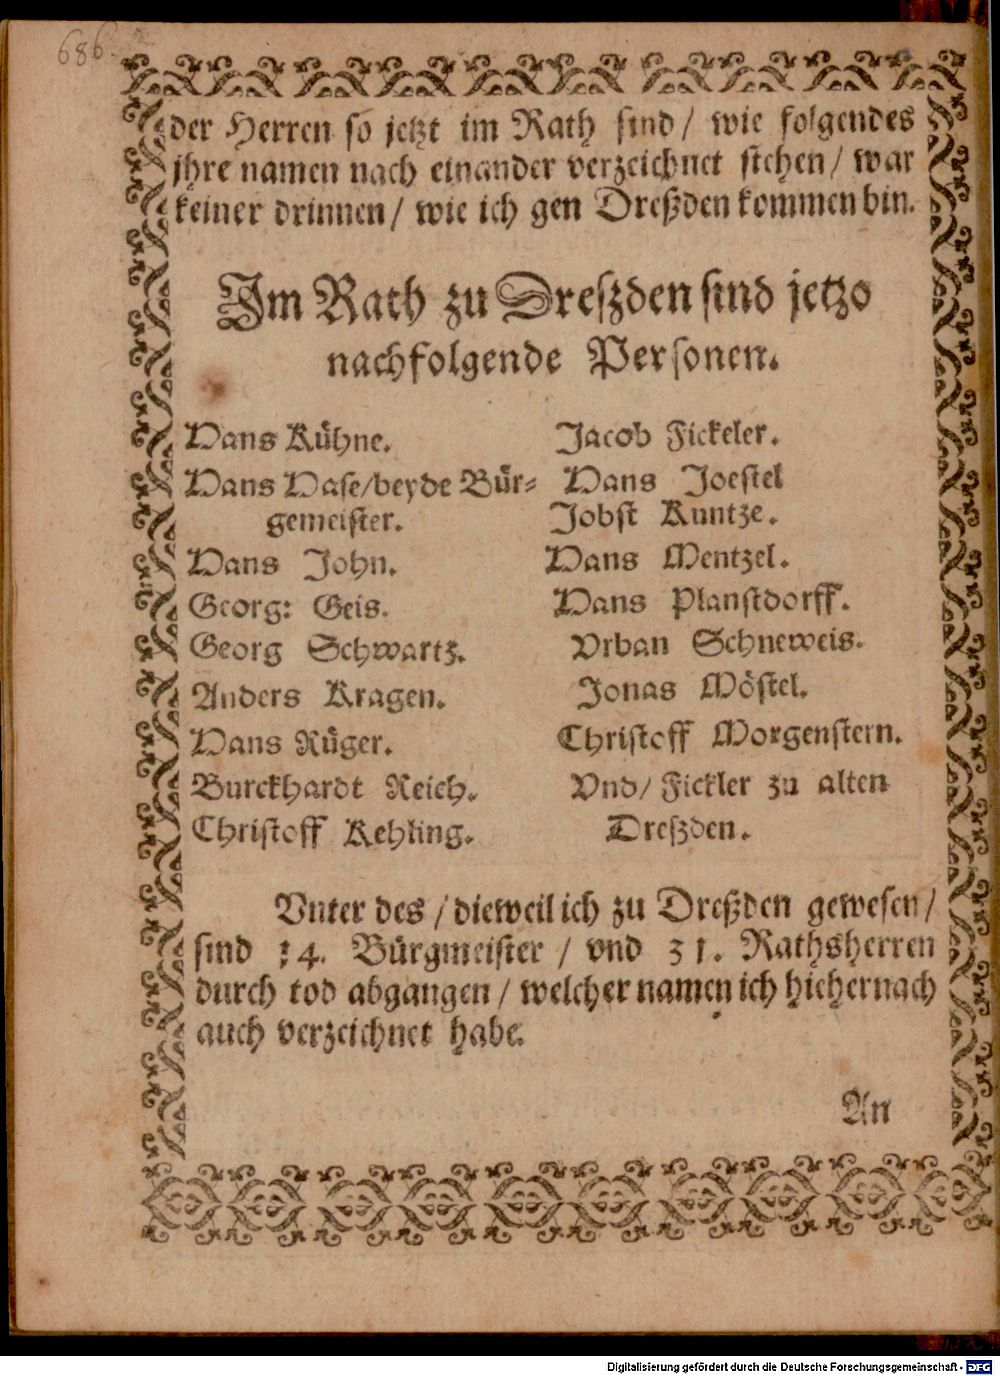 686.
der Herren so jetzt im Rath sind / wie folgendes
jhre namen nach einander verzeichnet stehen / war
keiner drinnen / wie ich gen Dreßden kommen bin.
Im Rath zu Dreszden sind jetzo
nachfolgende Personen.
Hans Kühne.
Hans Hase/beyde Bür-
gemeister.
Hans John.
Georg: Geis.
Georg Schwartz.
Anders Kragen.
Hans Rüger.
Burckhardt Reich.
Christoff Kehling.
Jacob Fickeler.
Hans Joestel
Jobst Kuntze.
Hans Mentzel.
Hans Planstdorff.
Vrban Schneweis.
Jonas Möstel.
Christoff Morgenstern.
Vnd/ Fickler zu alten
Dreszden.
Vnter des / dieweil ich zu Dreßden gewesen /
sind 14. Bürgmeister / vnd 31. Rathsherren
durch tod abgangen / welcher namen ich hiehernach
auch verzeichnet habe.
An
Digitalisierung gefördert durch die Deutsche Forschungsgemeinschaft - DFG